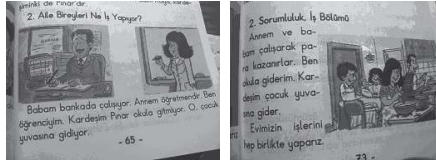 de Pınar dır.
2. Aile Bireyleri Ne İş Yapıyor?
Babam bankada çalışıyor. Annem öğretmendir. Ben
öğrenciyim. Kardeşim Pınar okula gitmiyor. O, çocuk
yuvasına gidiyor.
- 65 -
2. Sorumluluk, İş Bölümü
Annem ve ba-
bam çalışarak pa-
ra kazanırlar. Ben
okula giderim. Kar-
deşim çocuk yuva-
sına gider.
Evimizin işlerini
hep birlikte yaparız.
73